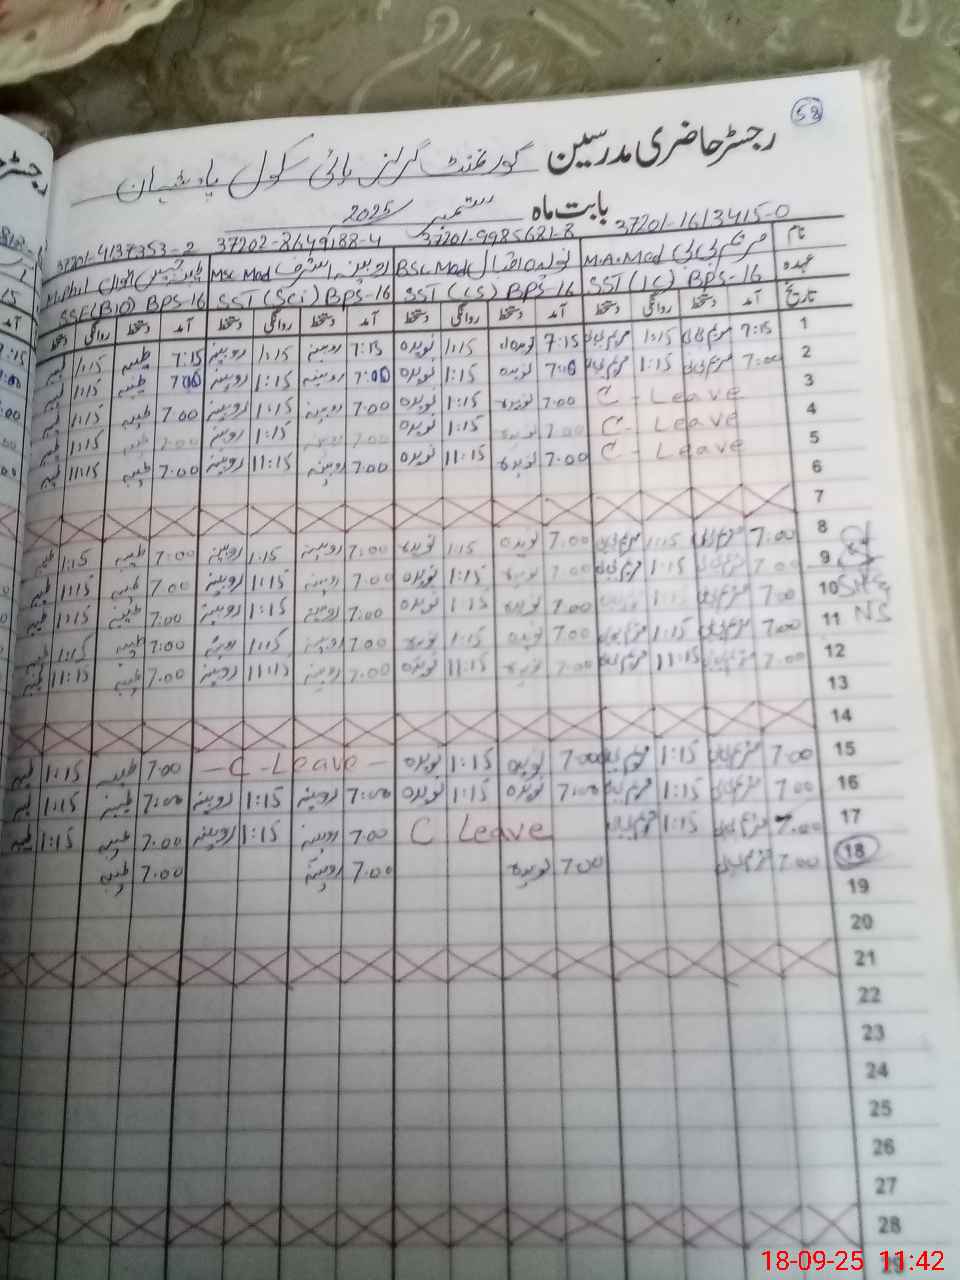 58
رجسٹر حاضری مدرسین گورنمنٹ گرلز ہائی سکول پادشہان
بابت ماہ ستمبر 2025
37201-1613415-0 37201-9985681-8 37202-8649188-4 37201-4137353-2
نام مریم بی بی M.A.Med نویدہ اقبال BSc Med روبینہ اشرف Msc Med M.Phil
عہدہ SST (IC) BPS-16 SST (LS) BPS-16 SST (Sci) BPS-16 SSE(BIO) BPS-16
تاریخ آمد دستخط روانگی دستخط آمد دستخط روانگی دستخط آمد دستخط روانگی دستخط آمد دستخط روانگی دستخط
1 7:15 مریم بی بی 1:15 مریم بی بی 7:15 نویدہ 1:15 نویدہ 7:15 روبینہ 1:15 روبینہ 7:15 طیبہ 1:15
2 7:00 مریم بی بی 1:15 مریم بی بی 7:00 نویدہ 1:15 نویدہ 7:00 روبینہ 1:15 روبینہ 7:00 طیبہ 1:15
3 C - Leave 7.00 نویدہ 1:15 نویدہ 7.00 روبینہ 1:15 روبینہ 7.00 طیبہ 1:15
4 C - Leave 7.00 نویدہ 1:15 نویدہ 7.00 روبینہ 1:15 روبینہ 7.00 طیبہ 1:15
5 C - Leave 7.00 نویدہ 11:15 نویدہ 7.00 روبینہ 11:15 روبینہ 7.00 طیبہ 11:15
6
7
8 7.00 مریم بی بی 1:15 مریم بی بی 7.00 نویدہ 1:15 نویدہ 7:00 روبینہ 1:15 روبینہ 7:00 طیبہ 1:15 طیبہ
9 7.00 مریم بی بی 1:15 مریم بی بی 7.00 نویدہ 1:15 نویدہ 7.00 روبینہ 1:15 روبینہ 7.00 طیبہ 1:15 طیبہ
10 7.00 مریم بی بی 1:15 7.00 نویدہ 1:15 نویدہ 7.00 روبینہ 1:15 روبینہ 7.00 طیبہ 1:15 طیبہ
11 NS 7.00 مریم بی بی 1:15 مریم بی بی 7.00 نویدہ 1:15 نویدہ 7.00 روبینہ 1:15 روبینہ 7.00 طیبہ 1:15 طیبہ
12 7.00 مریم بی بی 11:15 مریم بی بی 7.00 نویدہ 11:15 نویدہ 7.00 روبینہ 11:15 روبینہ 7.00 طیبہ 11:15 طیبہ
13
14
15 7.00 مریم بی بی 1:15 مریم بی بی 7.00 نویدہ 1:15 نویدہ - C - Leave - 7.00 طیبہ 1:15 طیبہ
16 7.00 مریم بی بی 1:15 مریم بی بی 7:00 نویدہ 1:15 نویدہ 7:00 روبینہ 1:15 روبینہ 7:00 طیبہ 1:15 طیبہ
17 7.00 مریم بی بی 1:15 مریم بی بی C Leave 7.00 روبینہ 1:15 روبینہ 7.00 طیبہ 1:15 طیبہ
18 7.00 مریم بی بی 7.00 نویدہ 7.00 روبینہ 7.00 طیبہ
19
20
21
22
23
24
25
26
27
28
29
18-09-25 11:42